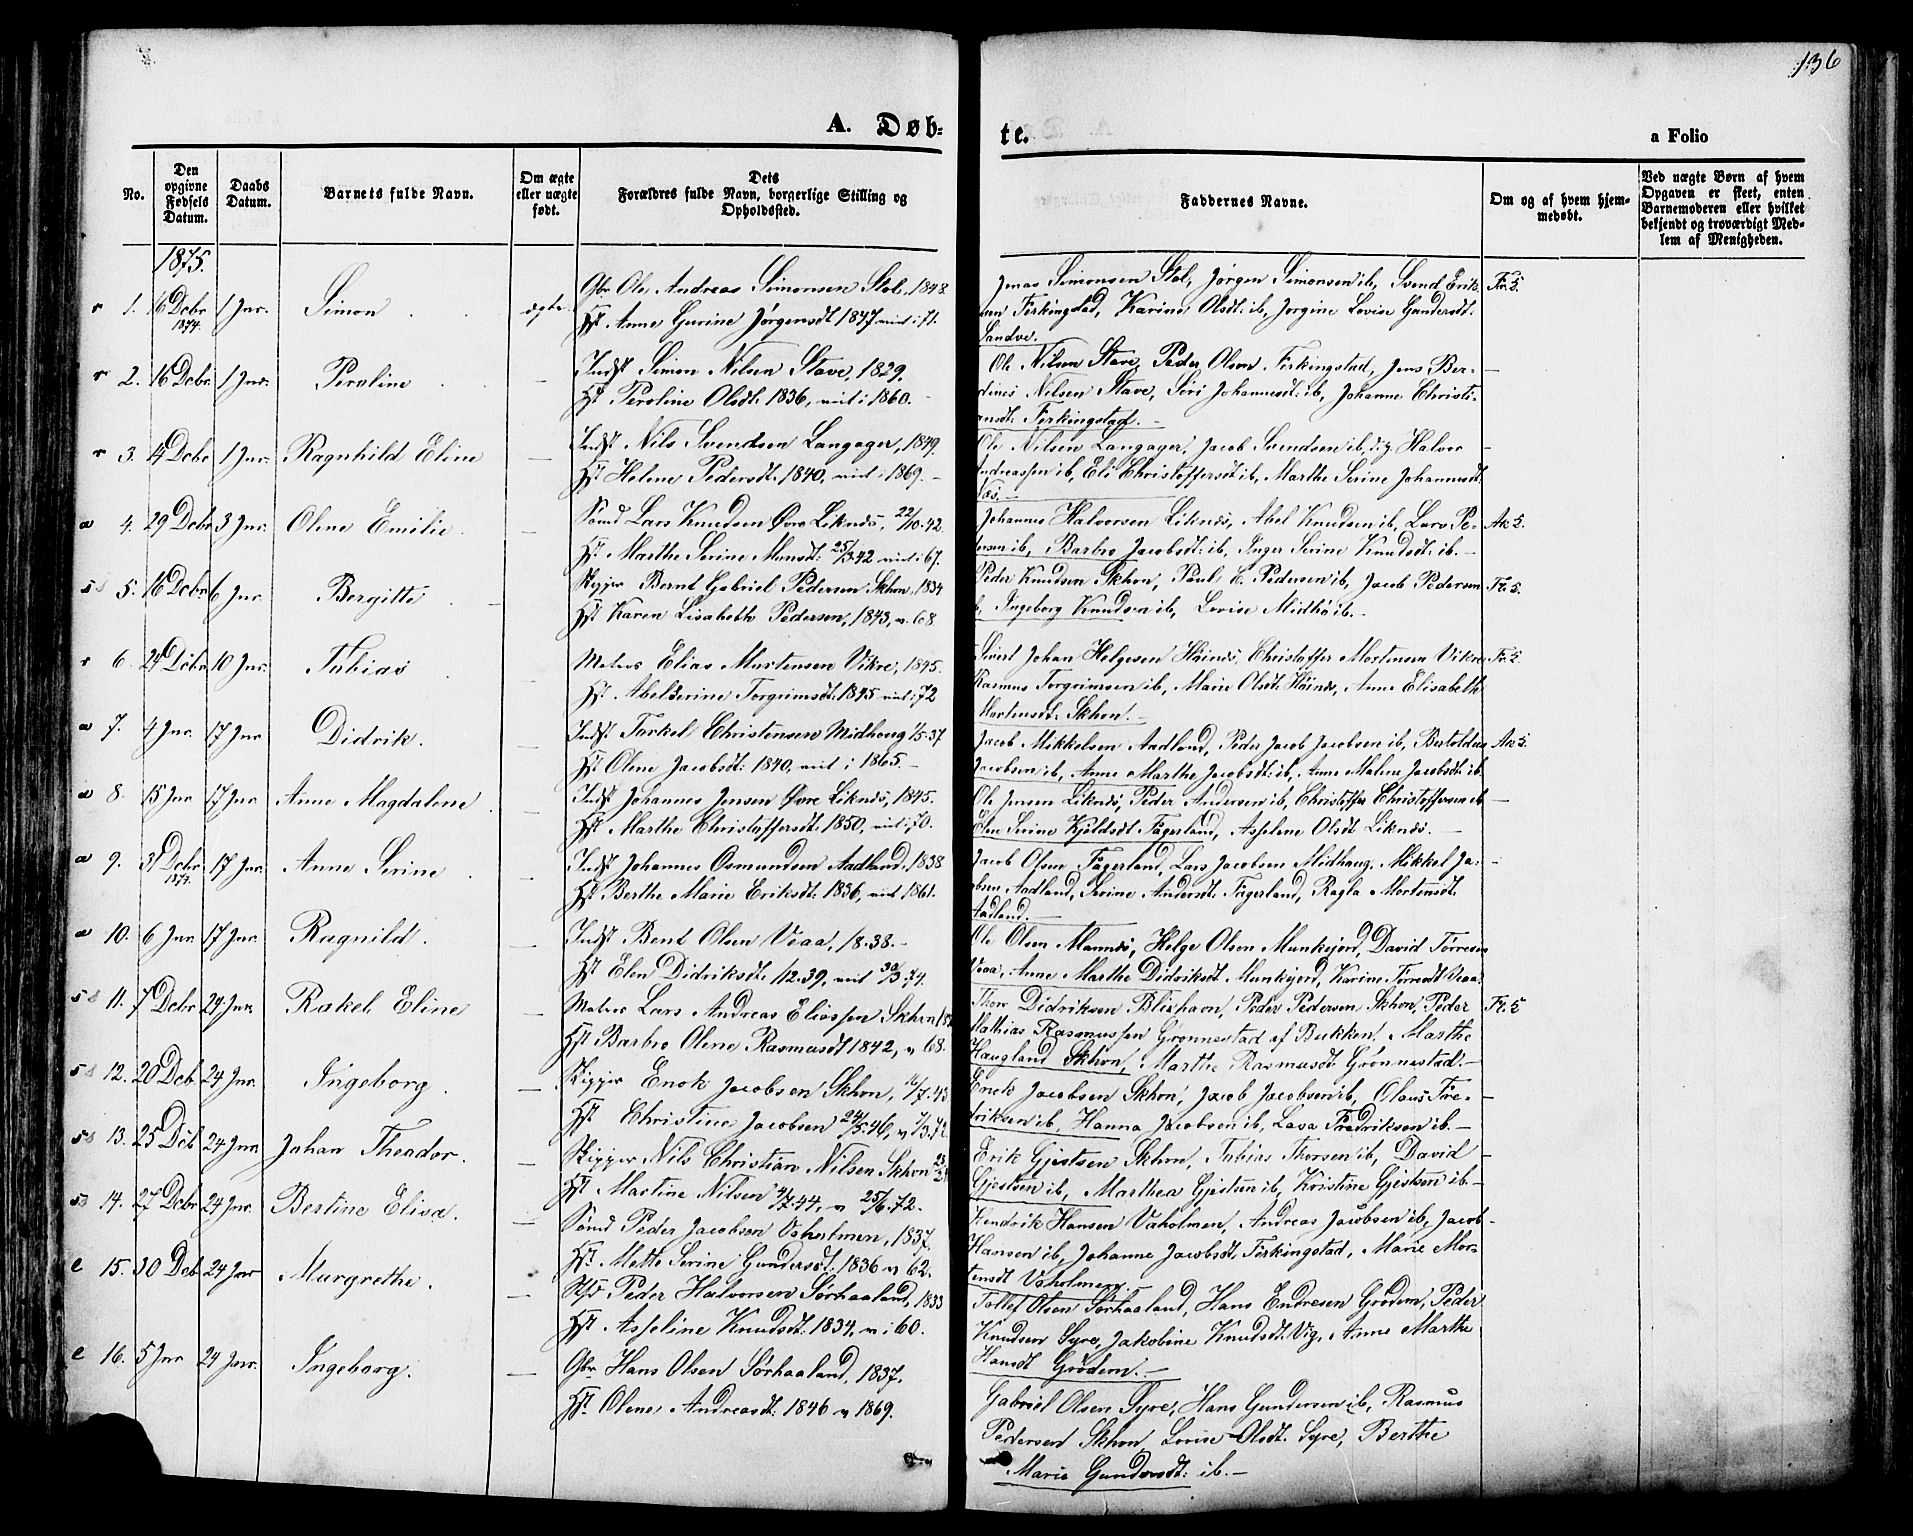 136
A. Døb-
te.
a Folio
No.
Den opgivne Fødsels Datum.
Daabs Datum.
Barnets fulde Navn.
Om ægte eller uægte født.
Dets Forældres fulde Navn, borgerlige Stilling og Opholdssted.
Faddernes Navne.
Om og af hvem hjemmedøbt.
Ved uægte Børn af hvem Opgaven er skeet, enten Barnemoderen eller hvilket bekjendt og troværdigt Medlem af Menigheden.
1875.
r 1. 16 Dcbr 1874. 1 Jnr. Simon ægte
Gbr Ole Andreas Simonsen Stol, 1848.
Hst Anne Gurine Jørgensdt 1847 viet i 71.
Jonas Simonsen Stol, Jørgen Simonsen ib, Svend Erik-
sen Ferkingstad, Karine Olsdt: ib, Jorgine Lovise Gundersdt:
Sandve.
Fr. 5.
r 2. 16 Dcbr 1 Jnr. Peroline —
Indst Simon Nilsen Stave, 1829.
Hst Peroline Olsdt: 1836, viet i 1860.
Ole Nilsen Stave, Peder Olsen Ferkingstad, Jens Ber-
dines Nilsen Stave, Siri Johannesdt: ib, Johanne Christi-
ansdt: Ferkingstad. —
r 3. 14 Dcbr 1 Jnr. Ragnhild Eline —
Indst Nils Svendsen Langager, 1849.
Hst Helene Pedersdt: 1840, viet i 1869. —
Ole Nilsen Langager, Jacob Svendsen ib, Halvor
Andreassen ib, Eli Christoffersdt ib, Marthe Serine Johannesdt:
Næs. —
a 4. 29 Dcbr 3 Jnr. Olene Emilie —
Lars Knudsen Øvre Liknæs, 22/10. 42.
Hst. Marthe Serine Monsdt: 25/3 42 viet i 67.
Johannes Halvorsen Liknæs, Abel Knudsen ib, Lars Pe-
dersen ib, Barbro Jacobsdt: ib, Inger Serine Knudsdt: ib. —
Ak 5.
5. 16 Dcbr. 6 Jnr. Bergitte —
Skipper Bernt Gabriel Pedersen Skhvn, 1834
Hst Karen Lisabeth Pedersen, 1843, v. 68.
Peder Knudsen Skhvn, Poul E. Pedersen ib, Jacob Pedersen
ib, Ingeborg Knudsen ib, Lovise Midhø ib. —
Fr. 5.
r 6. 24 Dcbr 10 Jnr. Tobias
Matros Elias Mortensen Vikre, 1845.
Hst. Abelserine Torgrimsdt: 1845 viet i 72
Sivert Johan Helgesen Høinæs, Christoffer Mortensen Vikre
Rasmus Torgrimsen ib, Marie Olsdt: Høinæs, Anne Elisabeth
Mortensdt: Skhvn. —
Fr. 5.
a 7. 4 Jnr. 17 Jnr Didrik. —
Indst Torkel Christensen Midhoug 37
Hst Olene Jacobsdt: 1840, viet i 1865. —
Jacob Mikkelsen Aadland, Peder Jacob Jacobsen ib, Bertoldus
Jacobsen ib, Anne Marthe Jacobsdt: ib, Anne Malene Jacobsdt ib.
Ak 5.
a 8. 15 Jnr 17 Jnr. Anne Magdalene —
Indst Johannes Jensen Øvre Liknæs, 1845.
Hst. Marthe Christoffersdt: 1850, viet i 70.
Ole Jensen Liknæs, Peder Andersen ib, Christoffer Christoffersen ib
Elen Serine Kjøldsdt Fagerland, Asseline Olsdt Liknæs. —
a 9. 31 Dcbr. 1874. 17 Jnr. Anne Serine —
Indst Johannes Osmundsen Aadland, 1838
Hst Berthe Marie Eriksdt: 1836, viet 1861.
Jacob Olsen Fagerland, Lars Jacobsen Midhaug, Mikkel Ja-
cobsen Aadland, Serine Andersdt: Fagerland, Ragla Mortensdt
Aadland. —
a 10. 6 Jnr. 17 Jnr. Ragnild. —
Indst Bent Olsen Veaa, 38. —
Hst Elen Didriksdt: 12. 39, viet 30/3. 74.
Ole Olsen Mannæs, Helge Olsen Munkejord, David Tørresen
Veaa, Anne Marthe Didriksdt. Munkejord, Karine Torresdt Veaa
11. 7 Dcbr 24 Jnr. Rakel Eline —
Matros Lars Andreas Eliassen Skhvn
Hst Barbro Olene Rasmusdt 1842, v. 68.
Thore Didriksen Blixhavn, Peder Pedersen Skhvn, Peder
Mathias Rasmussen Grønnestad af Bukken, Marthe
Haugland Skhvn, Marthe Rasmusdt Grønnestad. —
Fr. 5
12. 20 Dcb. 24 Jnr. Ingeborg. —
Skipper Enok Jacobsen Skhvn, 43
Hst Christine Jacobsen 24/5. 46, v 72.
Enok Jacobsen Skhvn, Jacob Jacobsen ib, Olaus Fre-
driksen ib, Hanna Jacobsen ib, Lava Fredriksen ib. —
13. 25 Dcb. 24 Jnr. Johan Theodor. —
Skipper Nils Christian Nilsen Skhvn
Hst Martine Nilsen 44, v 25/6. 72.
Erik Gjestsen Skhvn, Tobias Thorsen ib, David
Gjestsen ib, Marthea Gjestsen ib, Kristine Gjestsen ib. —
14. 27 Dcbr 24 Jnr. Bertine Elisa. —
Peder Jacobsen Vaholmen, 1837.
Hst. Mette Serine Gundersdt: 1836 v. 62.
Hendrik Hansen Vaholmen, Andreas Jacobsen ib, Jacob
Hansen ib, Johanne Jacobsdt Ferkingstad, Marie Mor-
tensdt Vaholmen. —
e 15. 30 Dcb 24 Jnr Margrethe. —
Peder Halvorsen Sørhaaland, 1833
Hst. Asseline Knudsdt: 1834, v. i 60.
Tollef Olsen Sørhaaland, Hans Endresen Grødem, Peder
Knudsen Syre, Jakobine Knudsdt: Vig, Anne Marthe
Hansdt Grødem. —
e 16. 5 Jnr 24 Jnr. Ingeborg. —
Gbr Hans Olsen Sørhaaland, 1837.
Hst. Olene Andreasdt: 1846 v 1869.
Gabriel Olsen Syre, Hans Gundersen ib, Rasmus
Pedersen Skhvn, Lovise Olsdt. Syre, Berthe
Marie Gundersdt: ib. —